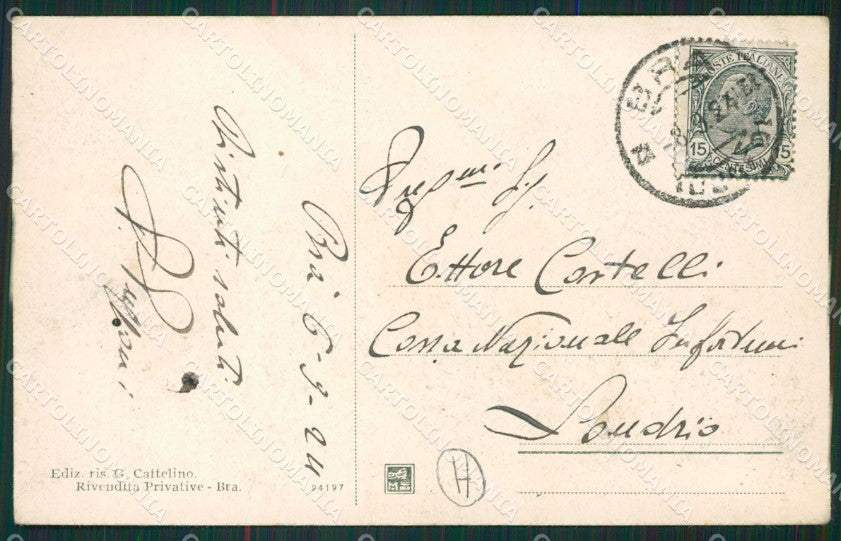 Bra' 6-9-24
Distinti saluti
Preg.mo Sig.
Ettore Castelli
Cassa Nazionale Infortuni
Sondrio
BRA
POSTE ITALIANE
15 15
CENTESIMI
Ediz. ris. G. Cattelino.
Rivendita Privative - Bra.
94197
H
CARTOLINOMANIA